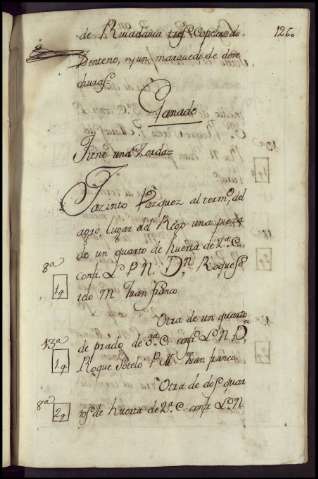 126
de Rivadavia tres copelos de
Zenteno, y un marquedi de dere
churas
Ganado
Tiene una Zerda
Jazinto Vazquez al termº del
agro, lugar del Rego una pieza
de un quarto de huerta de 2ª C.
confª Lº P N. Dn Roque So
telo M Juan franco
8ª
1q
Otra de un quarto
de prado de 3ª C. confª Lº N. D.
Roque Sotelo P M Juan franco
13ª
1q
Otra de dos quar
tos de huerta de 2ª C. confª Lº N
8ª
2q